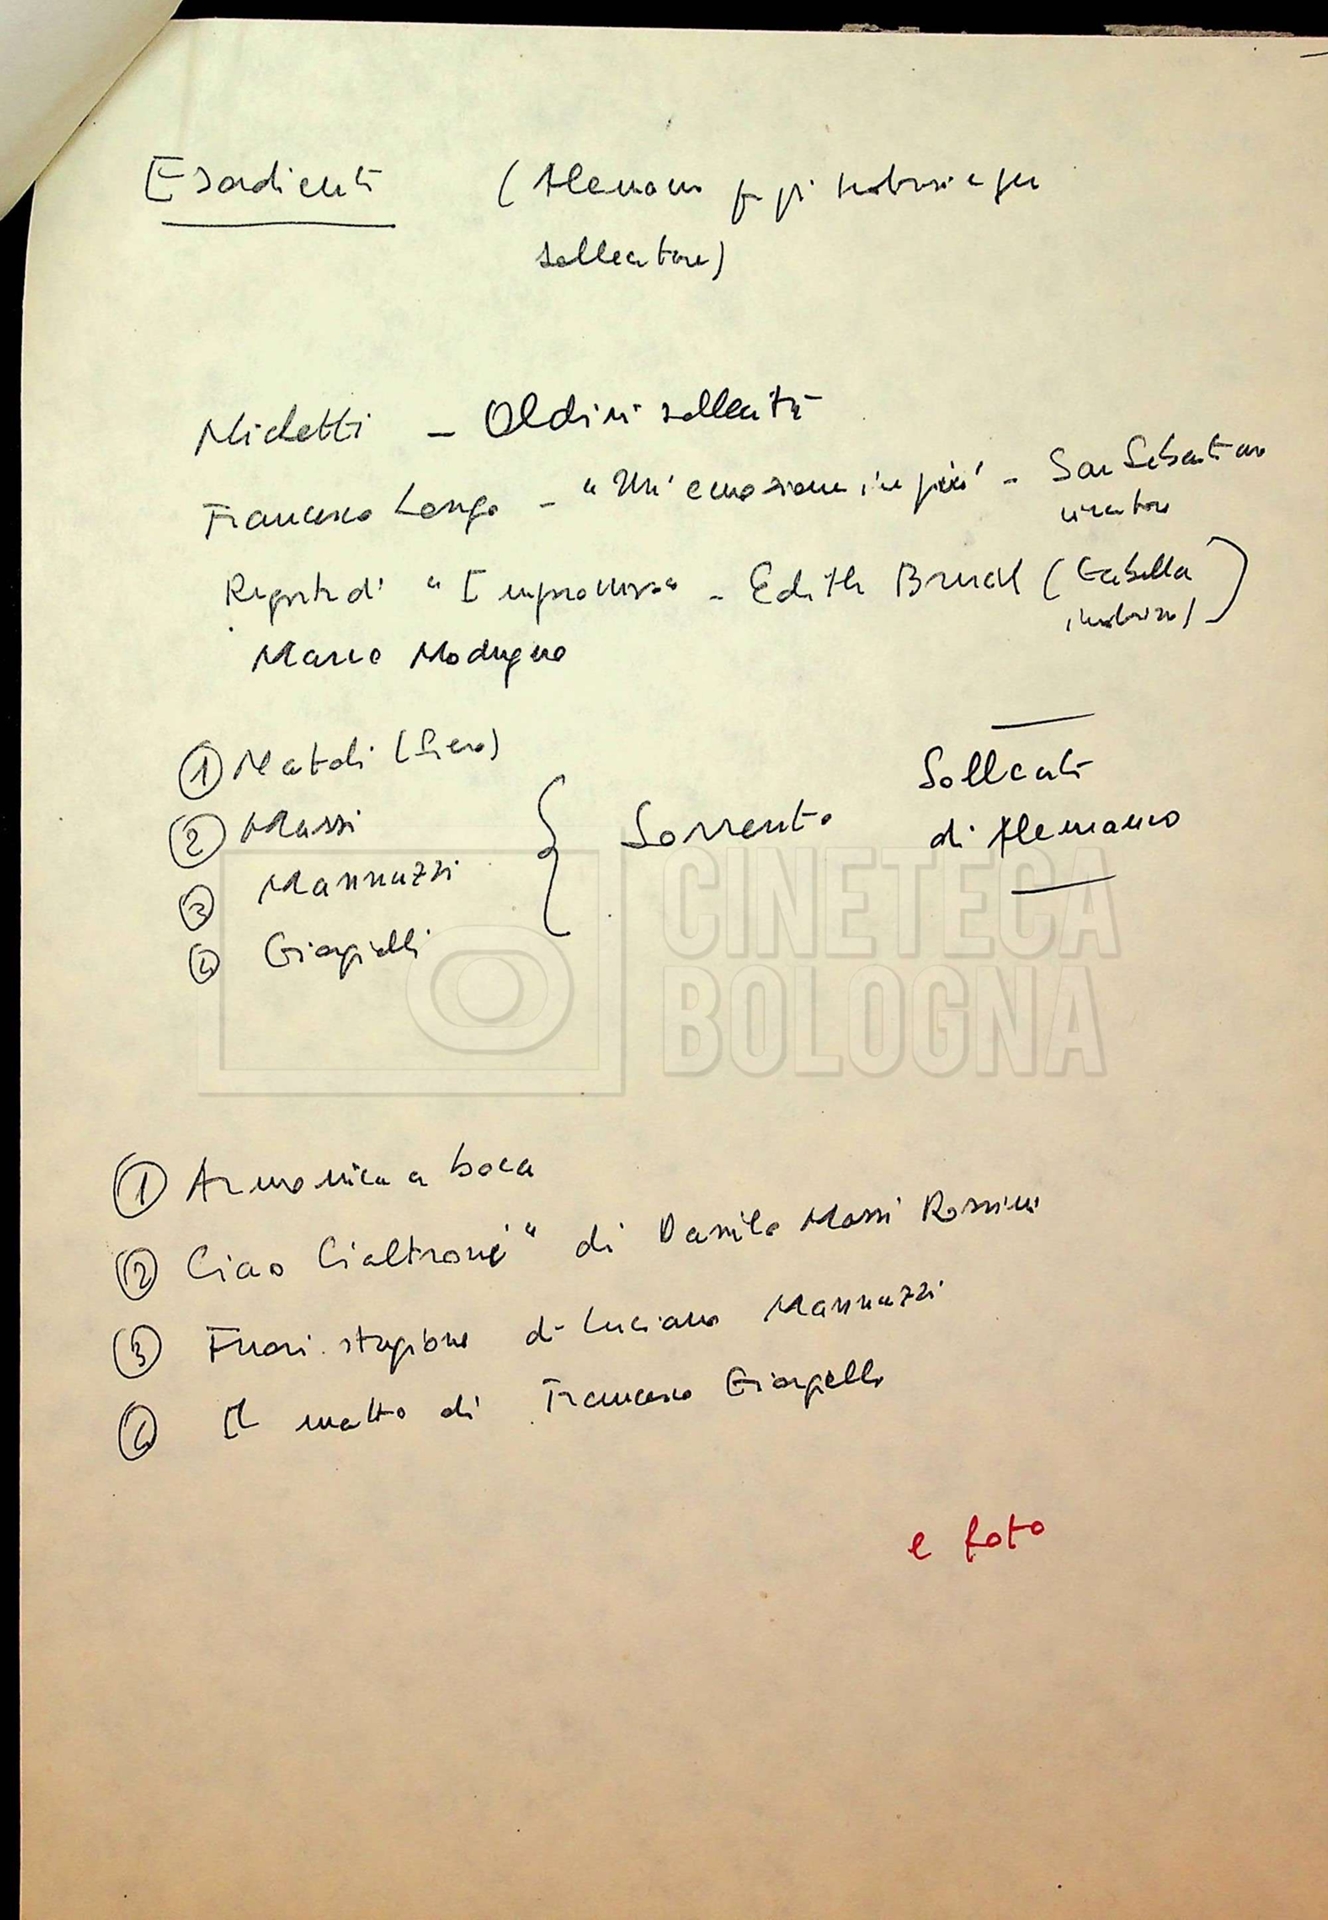 Esordienti (Alemanno
sollecitare)
Nichetti - Oldini sollecitato
Francesco Longo - "Un'emozione in più" - San Sebastiano
vincitore
Regista di "Improvviso" - Edith Bruck (Gabella
Marco Modugno
① Natoli (Piero)
② Massi
③ Mannuzzi
④ Giorgielli
Sorrento
Solleciti
di Alemanno
CINETECA
BOLOGNA
① Armonica a bocca
② Ciao Cialtroni" di Danilo Massi Rossini
③ Fuori stagione di Luciano Mannuzzi
④ Il matto di Francesco Giorgelli
e foto